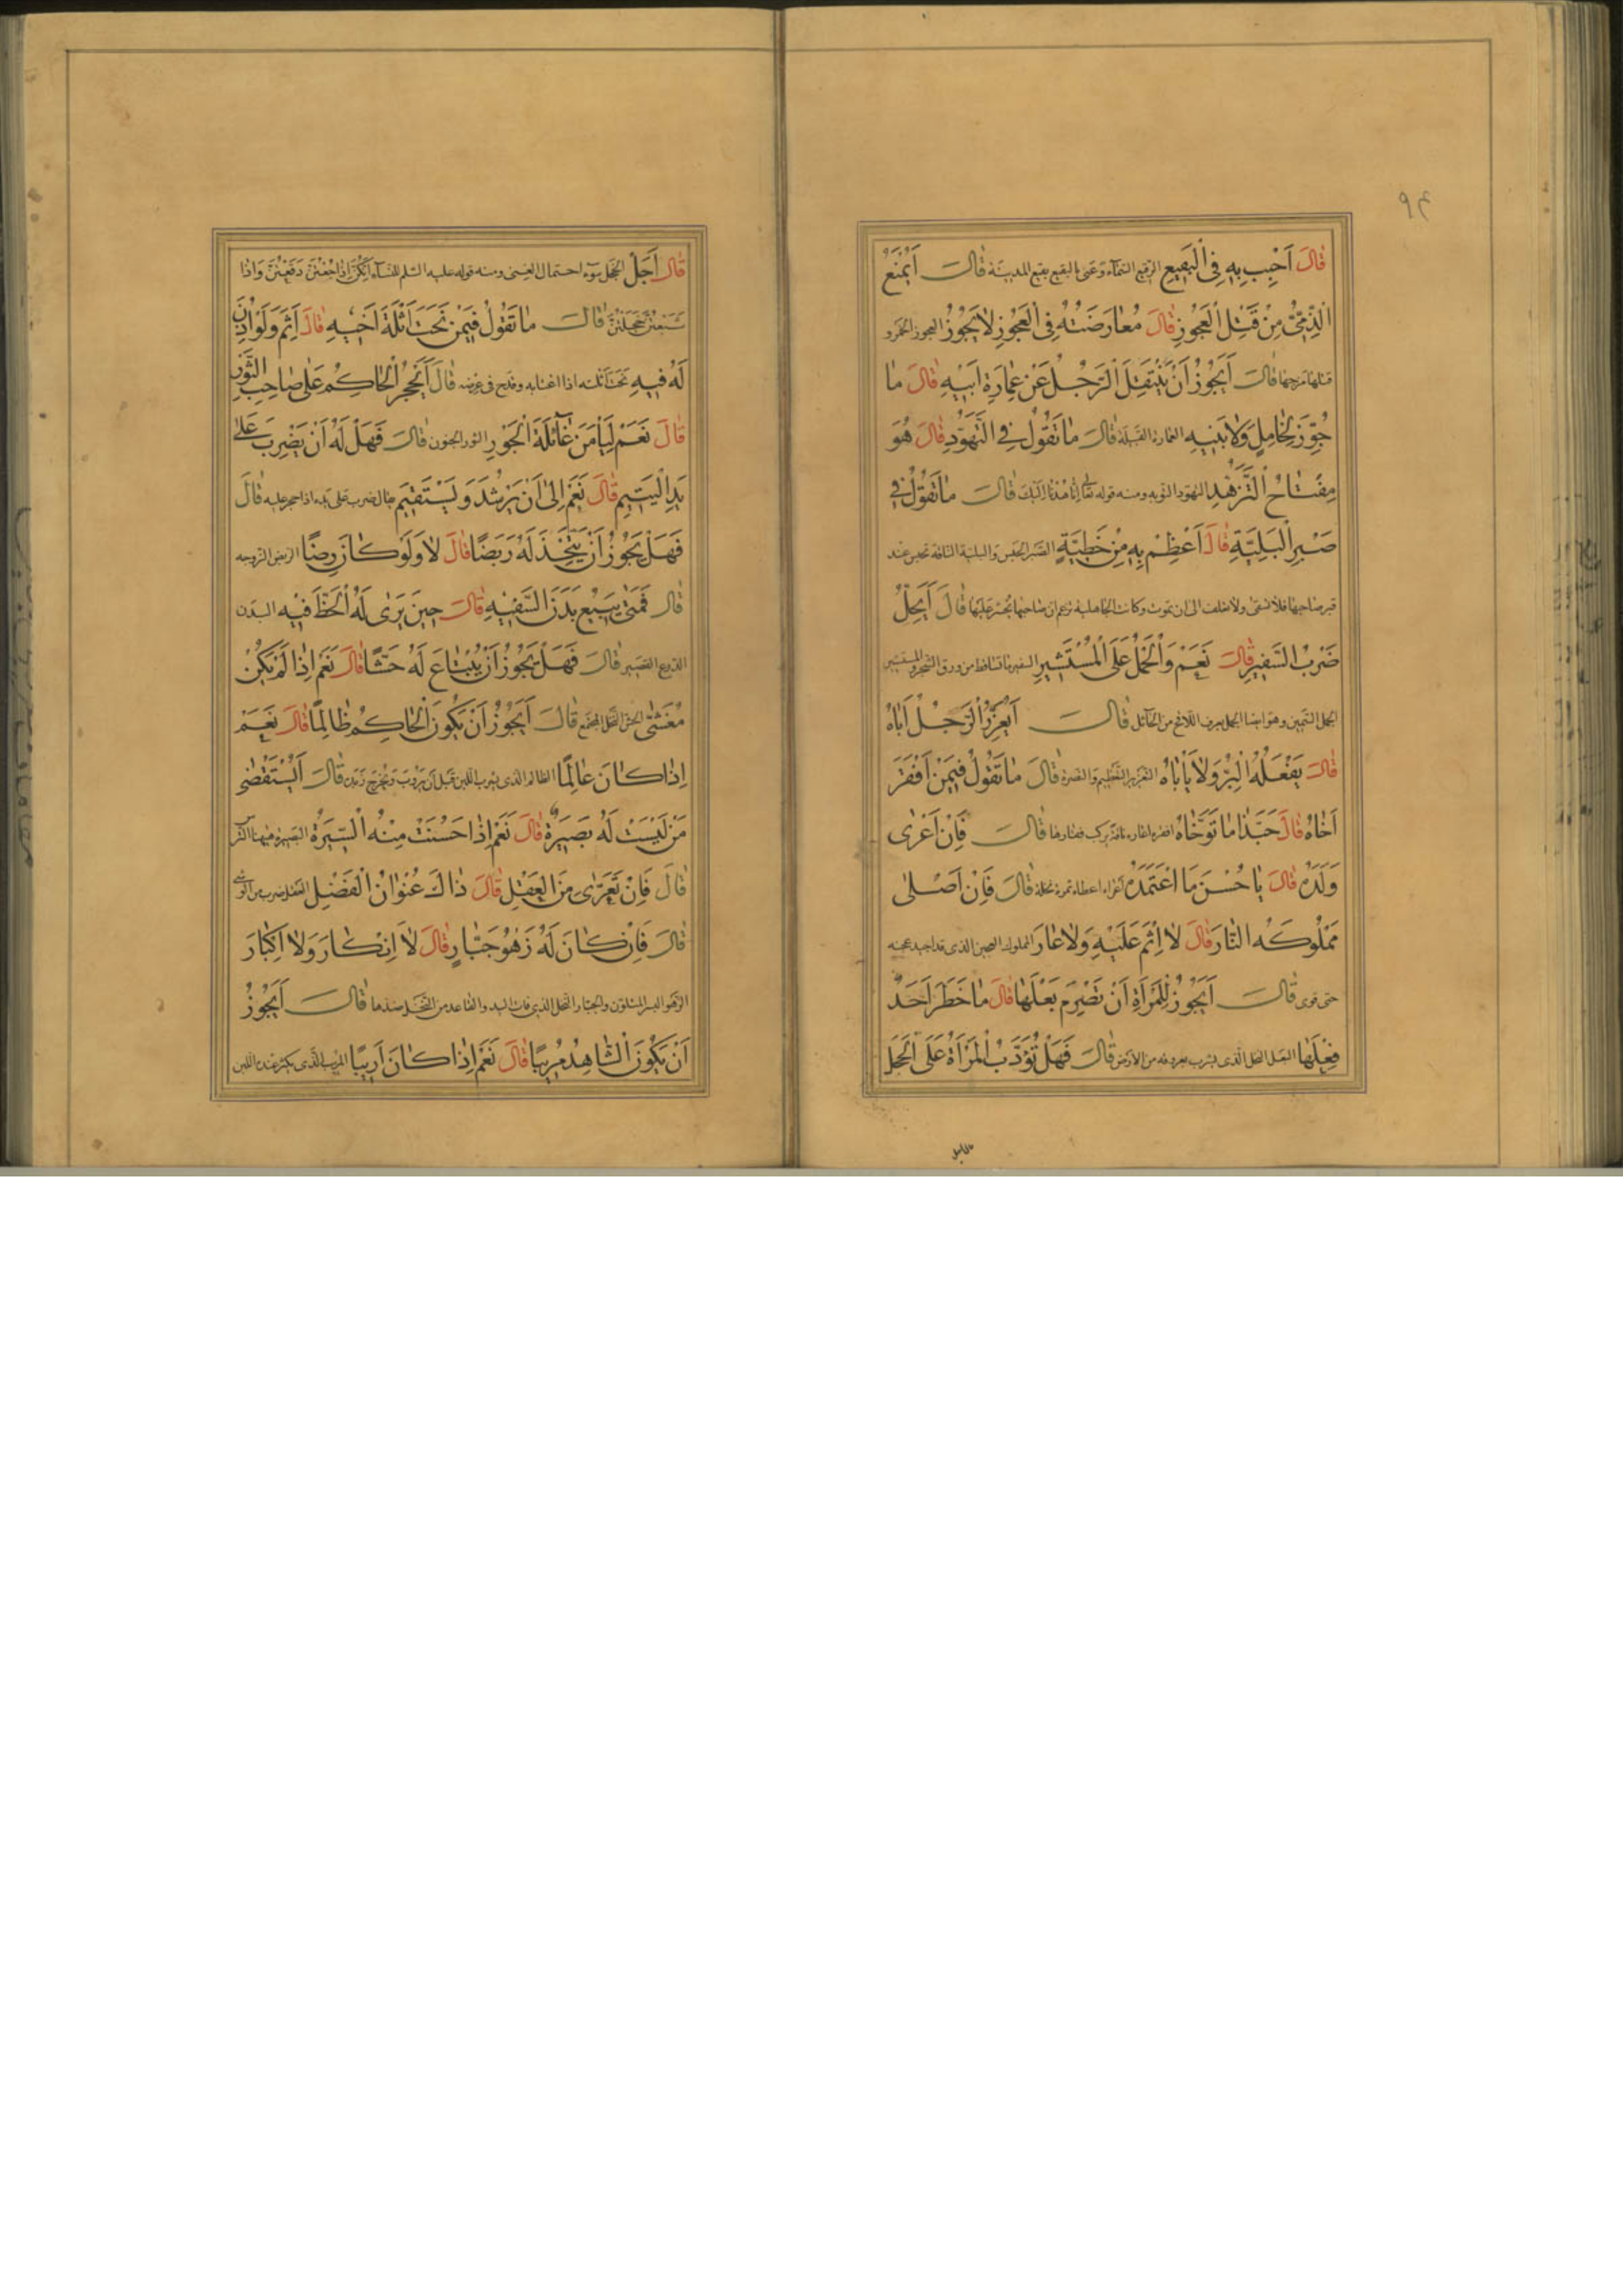 ٩٤
قَالَ اَحْبِبْ بِهِ فِى الْبَقِيعِ الرقيع السَّمآء وعنى بالبقيع بقيع المدينة قَالَ اَيُمْنَعُ
الذِّمِّىُّ مِنْ قَتْلِ الْعَجُوزِ قَالَ مُعَارَضَتُهُ فِى الْعَجُوزِ لَا يَجُوزُ العجوز الخمر و
قتلها مزجها قَالَ اَيَجُوزُ اَنْ يَنْتَقِلَ الرَّجُلُ عَنْ عِمَارَةِ اَبِيهِ قَالَ مَا
جُوِّزَ لِخَامِلٍ وَلَا نَبِيهٍ العمارة القبيلة قَالَ مَا تَقُولُ فِى التَّهَوُّدِ قَالَ هُوَ
مِفْتَاحُ التَّزَهُّدِ التهود التوبه ومنه قوله تعالى اِنَّا هُدْنَا اِلَيْكَ قَالَ مَا تَقُولُ فِى
صَبْرِ الْبَلِيَّةِ قَالَ اَعْظِمْ بِهِ مِنْ خَطِيَّةٍ الصَّبر الحبس والبلية الناقة تحبس عند
قبر صاحبها فلا تسقى ولا تعلف الى ان تموت وكانت الجاهلية تزعم ان صاحبها يحشر عليها قَالَ اَيَحِلُّ
ضَرْبُ السَّفِيرِ قَالَ نَعَمْ وَالْحَمْلُ عَلَى الْمُسْتَشِيرِ السفير ما تساقط من ورق الشجر والمستشير
الجمل السَّمين وهو ايضا الجمل يعرف اللاقح من الحائل قَالَ اَيُعَزِّرُ الرَّجُلُ اَبَاهُ
قَالَ يَفْعَلُهُ الْبَرُّ وَلَا يَأْبَاهُ التعزير التَّعظيم والنصرة قَالَ مَا تَقُولُ فِيمَنْ اَفْقَرَ
اَخَاهُ قَالَ حَبَّذَا مَا تَوَخَّاهُ افقره اعاره ناقة يركب فقارها قَالَ فَاِنْ اَعْرَى
وَلَدَهُ قَالَ يَا حُسْنَ مَا اعْتَمَدَهُ اعراه اعطاه ثمرة نخلة قَالَ فَاِنْ اَصْلَى
مَمْلُوكَهُ النَّارَ قَالَ لَا اِثْمَ عَلَيْهِ وَلَا عَارَ المملوك العجين الذى قد اجيد عجنه
حتى قوى قَالَ اَيَجُوزُ لِلْمَرْأَةِ اَنْ تَصْرِمَ بَعْلَهَا قَالَ مَا حَظَرَ اَحَدٌ
فِعْلَهَا البعل النخل الّذى يشرب بعروقه من الأرض قَالَ فَهَلْ تُؤَدَّبُ الْمَرْأَةُ عَلَى الْخَجَلِ
قَالَ اَجَلْ الخجل سوء احتمال الغنى ومنه قوله عليه السَّلم للنّساء اِنَّكُنَّ اِذَا جُعْتُنَّ دَقَعْتُنَّ وَاِذَا
شَبِعْتُنَّ خَجِلْتُنَّ قَالَ مَا تَقُولُ فِيمَنْ نَحَتَ اَثْلَةَ اَخِيهِ قَالَ اَثِمَ وَلَوْ اَذِنَ
لَهُ فِيهِ نَحَتَ اثلته اذا اغتابه وقدح فى عرضه قَالَ اَيَحْجُرُ الْحَاكِمُ عَلَى صَاحِبِ الثَّوْرِ
قَالَ نَعَمْ لِيَأْمَنَ غَآئِلَةَ الْجَوْرِ الثور الجنون قَالَ فَهَلْ لَهُ اَنْ يَضْرِبَ عَلَى
يَدِ الْيَتِيمِ قَالَ نَعَمْ اِلَى اَنْ يَرْشُدَ وَيَسْتَقِيمَ يقال ضرب على يده اذا حجر عليه قَالَ
فَهَلْ يَجُوزُ اَنْ يَتَّخِذَ لَهُ رَبَضًا قَالَ لَا وَلَوْ كَانَ رِضًا الربض الزوجه
قَالَ فَمَتَى يَبِيعُ بَدَنَ السَّفِيهِ قَالَ حِينَ يَرَى لَهُ الْحَظَّ فِيهِ البدن
الدرع القصير قَالَ فَهَلْ يَجُوزُ اَنْ يُبْتَاعَ لَهُ حَشًّا قَالَ نَعَمْ اِذَا لَمْ يَكُنْ
مُغَشًّى الحش النخل المجتمع قَالَ اَيَجُوزُ اَنْ يَكُونَ الْحَاكِمُ ظَالِمًا قَالَ نَعَمْ
اِذَا كَانَ عَالِمًا الظالم الذى يشرب اللبن قبل ان يروب ويخرج زبده قَالَ اَيُسْتَقْضَى
مَنْ لَيْسَتْ لَهُ بَصِيرَةٌ قَالَ نَعَمْ اِذَا حَسُنَتْ مِنْهُ السِّيرَةُ البصيرة هيهنا الترس
قَالَ فَاِنْ تَعَرَّى مِنَ الْعَقْلِ قَالَ ذَاكَ عُنْوَانُ الْفَضْلِ العقل ضرب من الوشى
قَالَ فَاِنْ كَانَ لَهُ زَهْوُ جَبَّارٍ قَالَ لَا اِنْكَارَ وَلَا اِكْبَارَ
الزّهو البسر المتلون والجبّار النّخل الذى فات اليد والقاعد من النّخل ضدها قَالَ اَيَجُوزُ
اَنْ يَكُونَ الشَّاهِدُ مُرِيبًا قَالَ نَعَمْ اِذَا كَانَ اَرِيبًا المريب الّذى يكثر عنده اللبن